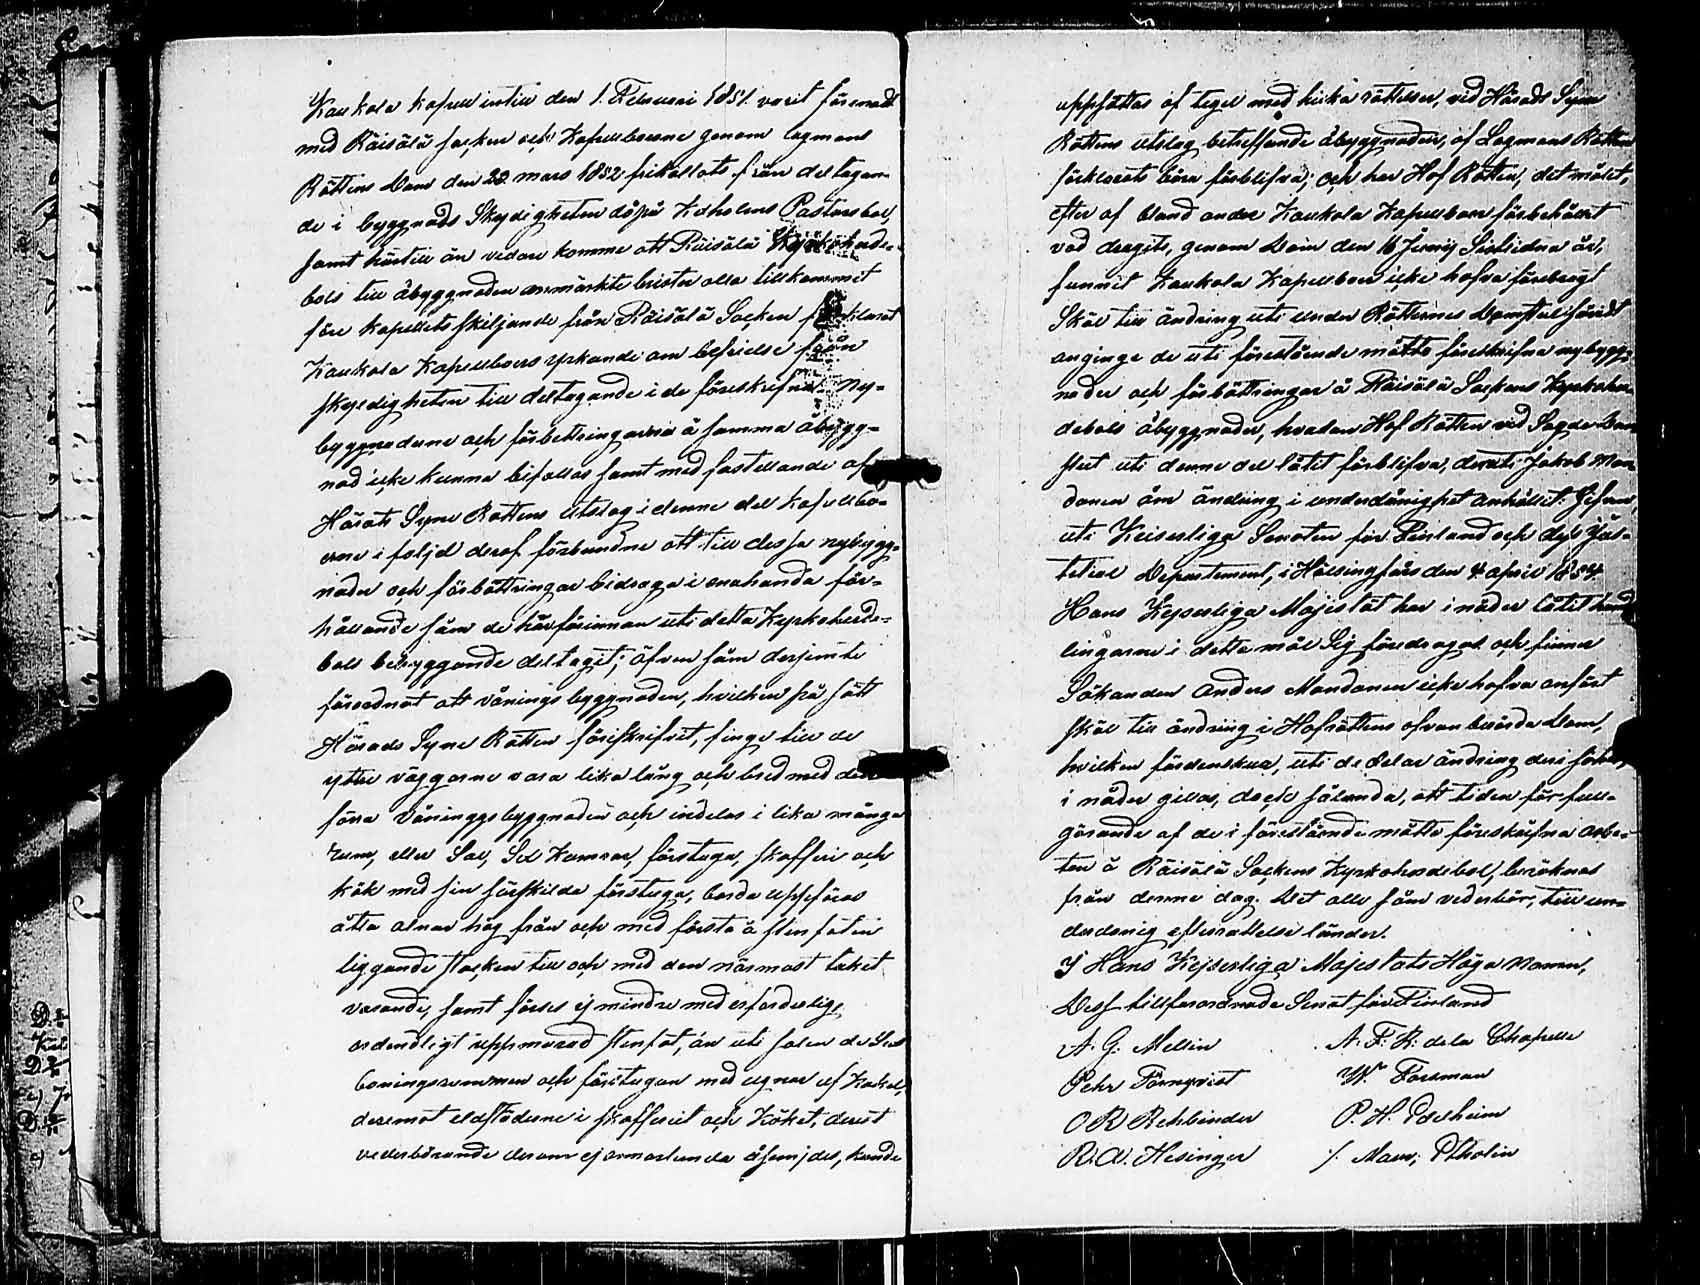 Kaukola kapell intill den 1. Februari 1851. varit förenadt
med Räisälä socken och Kapellboerne genom Lagmans
Rättens dom den 20 mars 1852 frikallats från deltagan-
de i byggnads Skyldigheten då på Kexholms Pastorsbol,
samt härtill än vidare komme att Räisälä Kyrkoherde-
bols till åbyggnaden anmärkte brister alla tillkommit
före kapellets skiljande från Räisälä Socken förklarat
Kaukola Kapellboers yrkande om befrielse från
skyldigheten till deltagande i de föreskrefna ny-
byggnaderne och förbettringarna å samma åbygg-
nad icke kunna bifallas samt med fastellande af
Härads Syne Rättens Utslag i denne del kapellbo-
erne i följd deraf förbundne att till dessa nybygg-
nader och förbättringar bidraga i enahanda för-
hållande som de härförinnan uti detta Kyrkoherde-
bols bebyggande deltagit; äfven som derjemte
förordnat att vånings byggnaden, hvilken på sätt
Härads Syne Rätten föreskrifvit, finge till de
yttre väggarne vara lika lång och bred med den
förra Våningsbyggnaden och indelas i lika många
rum, eller Sal, Sex Kamrar, förstuga, skafferi och
kök med sin särskilda förstuga, borde uppföras
åtta alnar hög från och med första å stenfoten
liggande stocken till och med den närmast taket
varande, samt förses ej mindre med erforderlig,
ordendtligt uppmurad stenfot, än uti salen de Sex
boningsrummen och förstugan med ugnar af Kakel,
deremot eldstäderne i skafferiet och Köket, derest
vederbörande derom ej annorlunda åsemjdes, kunde
uppsättas af tegel med hvita rättelser, vid Härads Syne
Rättens utslag beträffande åbyggnaden, af Lagmans Rätten
förklarats böra förblifva; och har Hof Rätten, dit målet,
efter af bland andre Kaukola Kapellboer förbehållet
vad dragits, genom Dom den 16 Junij Sistlidna år,
funnit Kaukola Kapellboer icke hafva förebragt
Skäl till ändring uti under Rätternes Domslut såvidt
anginge de uti förestående måtto föreskrifna nybygg-
nader och förbättringar å Räisälä Sockens Kyrkoher-
debols åbyggnader, hvadan Hof Rätten vid Sagde Dom
slut uti denne del låtit förblifva, deruti Jakob Mon
donen om ändring i underdånighet anhållit. Gifven,
uti Keiserliga Senaten för Finland och dess Jus-
titiæ Departement, i Helsingfors den 4 April 1854.
Hans Kejserliga Majestät har i nåder låtit hand
lingarne i detta mål Sig föredragas och finner
Sökanden Anders Mondonen icke hafva anfört
skäl till ändring i Hofrättens ofvan berörda Dom,
hvilken fördenskull, uti de delar ändring deri sökts,
i nåder gillas, dock sålunda, att tiden för full-
görande af de i förestående måtto föreskrifna arbe-
ten å Räisälä Sockens Kyrkoherdebol, beräknas
från denne dag. Det alle som vederbör, till un-
derdånig efterrättelse länder.
I Hans Kejserliga Majestäts Höga Namn,
Dess tillförordnade Senat för Finland
A. G. Mellin A. F. R. de la Chapelle
Pehr Törnqvist W. Forsman
O R Rehbinder P. H. Edelheim
R. W. Hisinger /. Maur,